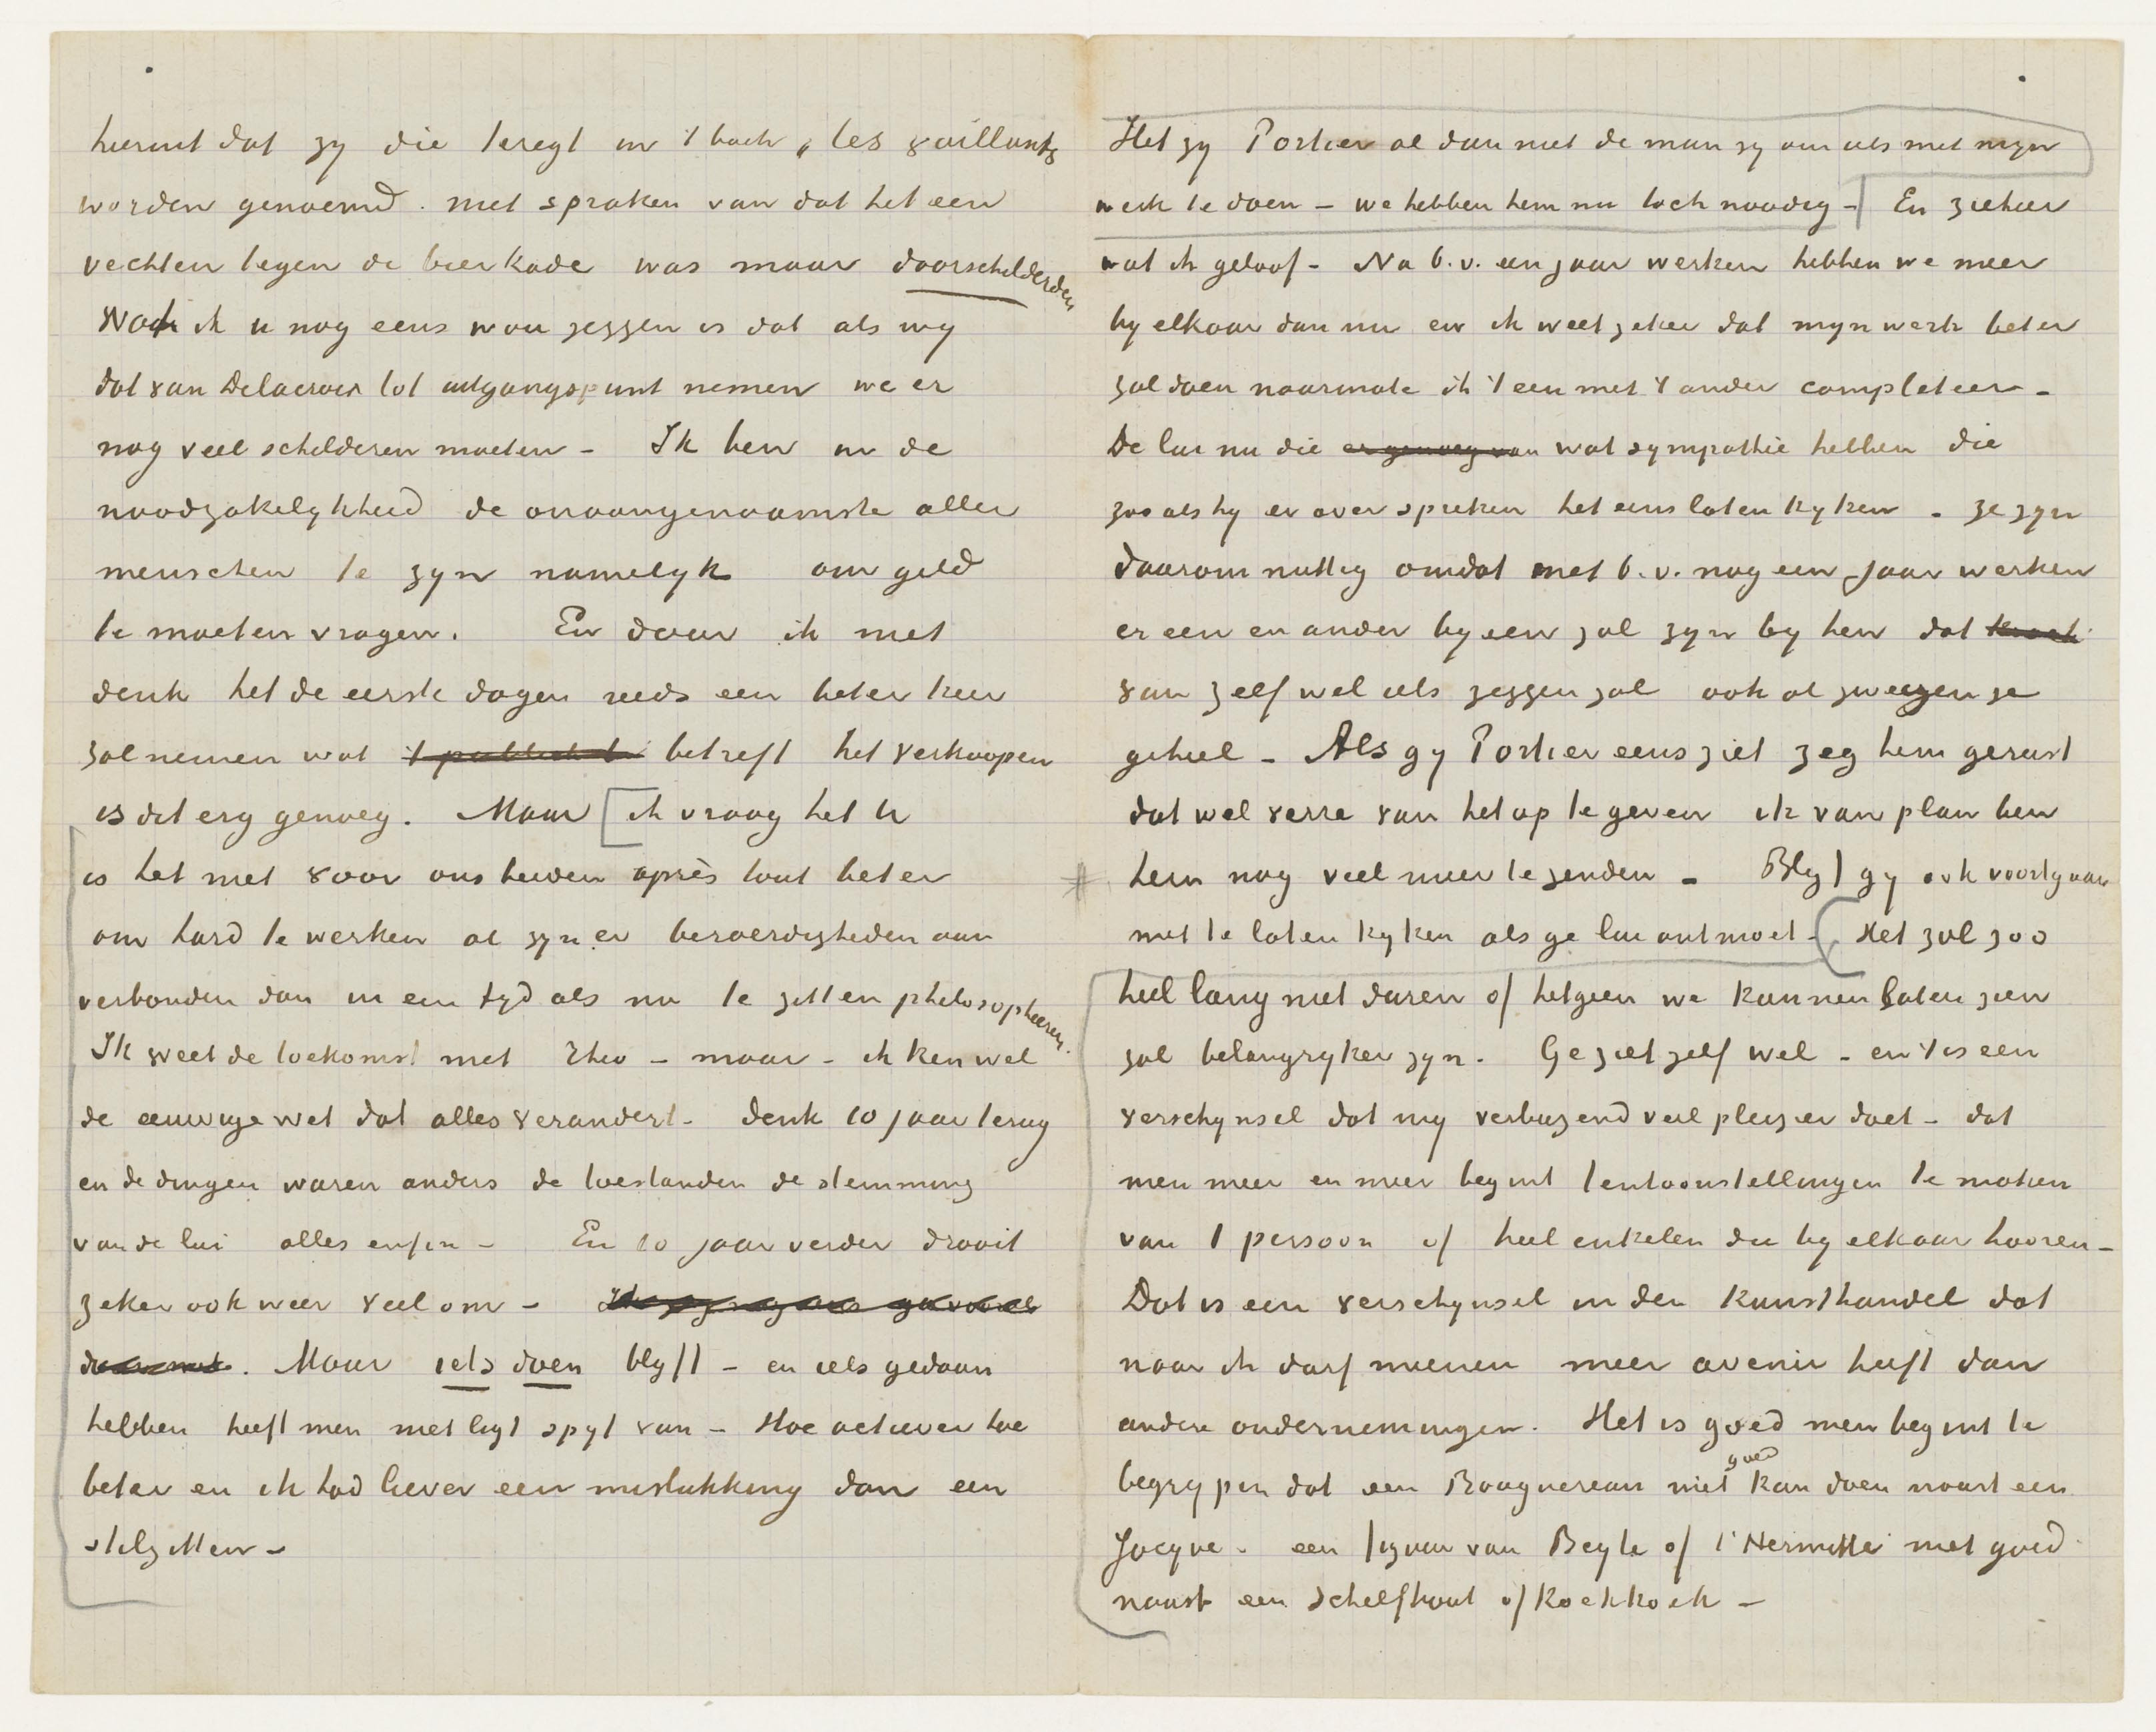 hierint dat zy die teregt in 't boek „les vaillants
worden genoemd. niet spraken van dat het een
vechten tegen de bierkade was maar doorschilderden
Wat ik u nog eens wou zeggen is dat als wy
dat van Delacroix tot uitgangspunt nemen we er
nog veel schilderen moeten – Ik ben in de
noodzakelykheid de onaangenaamste aller
menschen te zyn namelyk om geld
te moeten vragen. En daar ik niet
denk het de eerste dagen reeds een beter keer
zal nemen wat betreft het verkoopen
is dit erg genoeg. Maar [ik vraag het U
is het niet voor ons beiden après tout beter
om hard te werken al zyn er beroerdigheden aan
verbonden dan in een tyd als nu te zitten philosopheeren.
Ik weet de toekomst niet Theo – maar – ik ken wel
de eeuwige wet dat alles verandert – denk 10 jaar terug
en de dingen waren anders de toestanden de stemming
van de lui alles enfin – En 10 jaar verder draait
zeker ook weer veel om –
. Maar iets doen blyft – en iets gedaan
hebben heeft men niet ligt spyt van – Hoe actiever hoe
beter en ik had liever een mislukking dan een
stilzitten –
Het zy Portier al dan niet de man zy om iets met myn
werk te doen – we hebben hem nu toch noodig –] En ziehier
wat ik geloof – Na b.v. een jaar werken hebben we meer
by elkaar dan nu en ik weet zeker dat myn werk beter
zal doen naarmate ik 't een met 't ander completeer –
De lui nu die er genoeg van wat sympathie hebben die
zoo als hy er over spreken het eens laten kyken – ze zyn
daarom nuttig omdat met b.v. nog een jaar werken
er een en ander byeen zal zyn by hen dat
van zelf wel iets zeggen zal ook al zweegen ze
geheel – Als gy Portier eens ziet zeg hem gerust
dat wel verre van het op te geven ik van plan ben
# hem nog veel meer te zenden – Blyf gy ook voortgaan
met te laten kyken als ge lui ontmoet – (Het zal zoo
heel lang niet duren of hetgeen we kunnen laten zien
zal belangryker zyn. Ge ziet zelf wel – en 't is een
verschynsel dat my verbazend veel pleizier doet – dat
men meer en meer begint tentoonstellingen te maken
van 1 persoon of heel enkelen die by elkaar hooren –
Dat is een verschynsel in den kunsthandel dat
naar ik durf meenen meer avenir heeft dan
andere ondernemingen. Het is goed men begint te
begrypen dat een Bouguereau niet goed kan doen naast een
Jacque – een figuur van Beyle of l'Hermitte niet goed
naast een Schelfhout of Koekkoek –